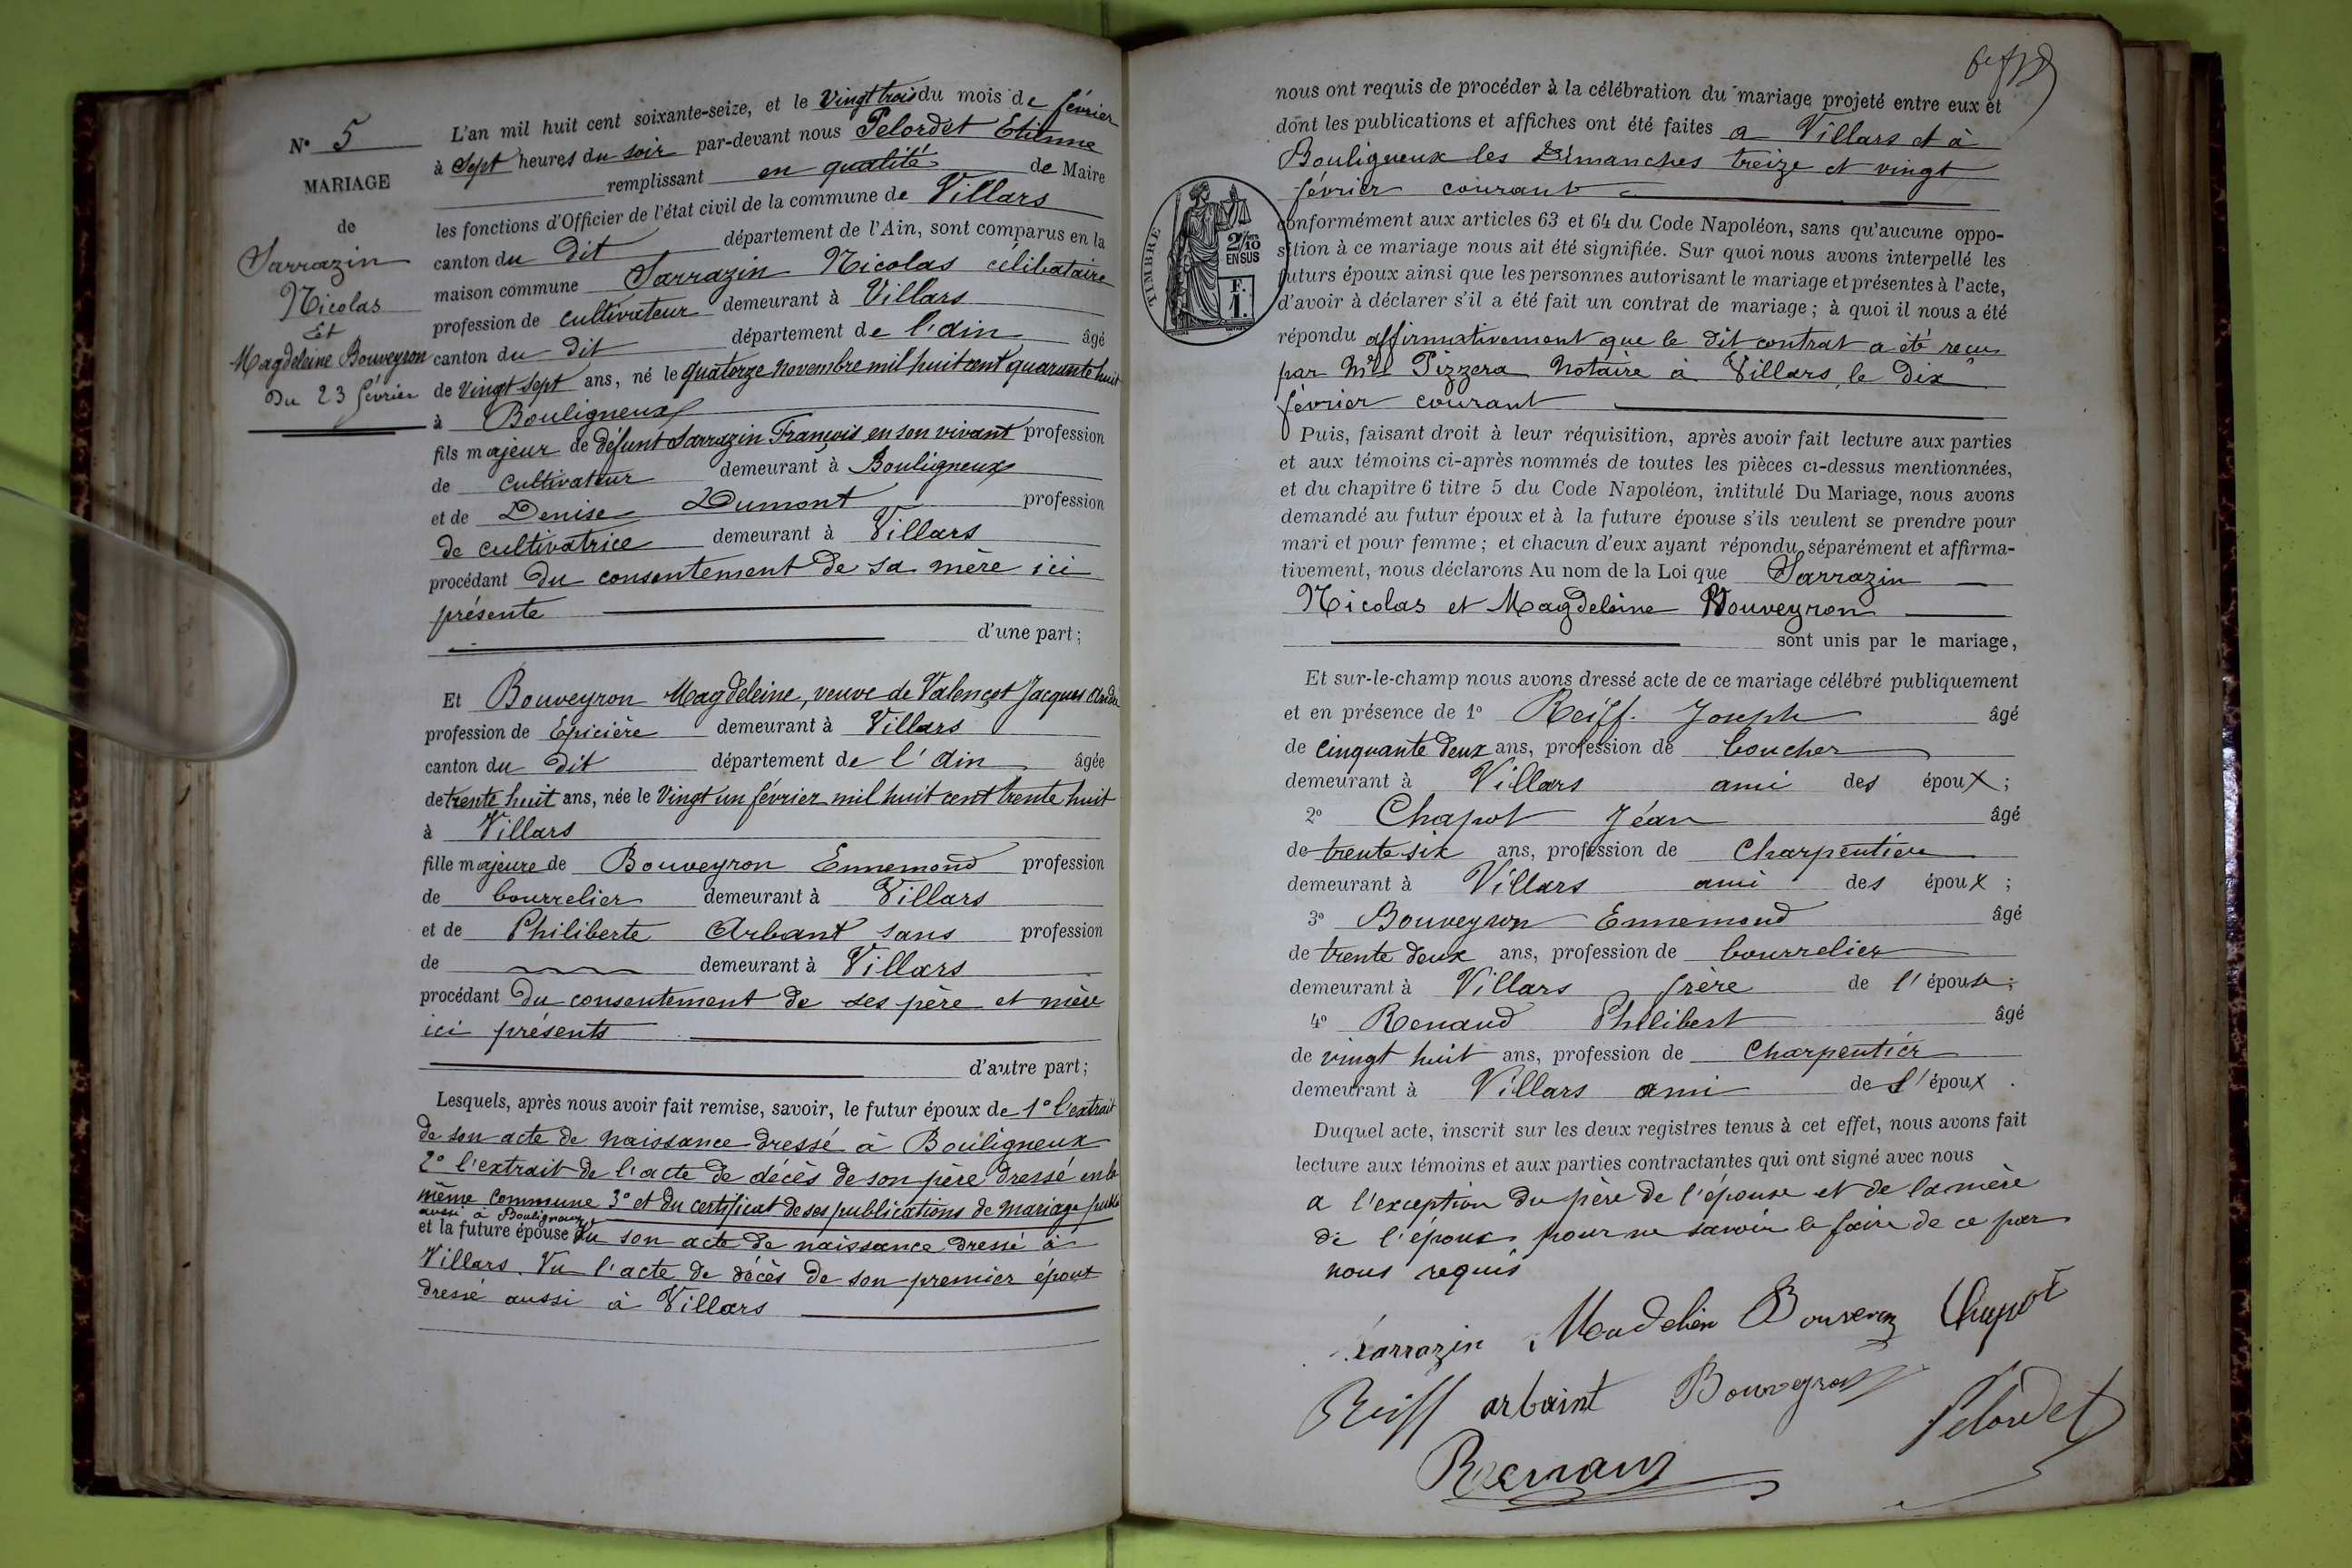 N° 5
MARIAGE
de
Sarrazin
Nicolas
Et
Magdeleine Bouveyron
Du 23 février
L'an mil huit cent soixante-seize, et le Vingt trois du mois de février
à Sept heures du soir par-devant nous Pelordet Etienne
remplissant en qualité de Maire
les fonctions d'Officier de l'état civil de la commune de Villars
canton du dit département de l'Ain, sont comparus en la
maison commune Sarrazin Nicolas célibataire
profession de cultivateur demeurant à Villars
canton du dit département de l'Ain âgé
de Vingt sept ans, né le quatorze novembre mil huit cent quarante huit
à Bouligneux
fils majeur de défunt Sarrazin François en son vivant profession
de cultivateur demeurant à Bouligneux
et de Denise Dumont profession
de cultivatrice demeurant à Villars
procédant du consentement de sa mère ici
présente
d'une part;
Et Bouveyron Magdeleine, veuve de Valençot Jacques
profession de Epicière demeurant à Villars
canton du dit département de l'Ain âgée
de trente huit ans, née le Vingt un février mil huit cent trente huit
à Villars
fille majeure de Bouveyron Ennemond profession
de bourrelier demeurant à Villars
et de Philiberte Arbant sans profession
de demeurant à Villars
procédant du consentement de ses père et mère
ici présents
d'autre part;
Lesquels, après nous avoir fait remise, savoir, le futur époux de 1° l'extrait
de son acte de naissance dressé à Bouligneux
2° l'extrait de l'acte de décès de son père dressé en la
même commune 3° et du certificat de ses publications de mariage
aussi à Bouligneux
et la future épouse Vu son acte de naissance dressé à
Villars. Vu l'acte de décès de son premier époux
dressé aussi à Villars
nous ont requis de procéder à la célébration du mariage projeté entre eux et
dont les publications et affiches ont été faites a Villars et à
Bouligneux les Dimanches treize et vingt
février courant
TIMBRE
2/10
EN SUS
F.
1.
conformément aux articles 63 et 64 du Code Napoléon, sans qu'aucune oppo-
sition à ce mariage nous ait été signifiée. Sur quoi nous avons interpellé les
futurs époux ainsi que les personnes autorisant le mariage et présentes à l'acte,
d'avoir à déclarer s'il a été fait un contrat de mariage; à quoi il nous a été
répondu affirmativement que le dit contrat a été reçu
par Me Pizzera Notaire à Villars, le dix
février courant
Puis, faisant droit à leur réquisition, après avoir fait lecture aux parties
et aux témoins ci-après nommés de toutes les pièces ci-dessus mentionnées,
et du chapitre 6 titre 5 du Code Napoléon, intitulé Du Mariage, nous avons
demandé au futur époux et à la future épouse s'ils veulent se prendre pour
mari et pour femme; et chacun d'eux ayant répondu séparément et affirma-
tivement, nous déclarons Au nom de la Loi que Sarrazin
Nicolas et Magdeleine Bouveyron
sont unis par le mariage,
Et sur-le-champ nous avons dressé acte de ce mariage célébré publiquement
et en présence de 1° Reiff Joseph âgé
de cinquante deux ans, profession de boucher
demeurant à Villars ami des époux;
2° Chapot Jéan âgé
de trente six ans, profession de Charpentier
demeurant à Villars ami des époux;
3° Bouveyron Ennemond âgé
de trente deux ans, profession de bourrelier
demeurant à Villars frère de l'épouse;
4° Renaud Philibert âgé
de vingt huit ans, profession de Charpentier
demeurant à Villars ami de l'époux.
Duquel acte, inscrit sur les deux registres tenus à cet effet, nous avons fait
lecture aux témoins et aux parties contractantes qui ont signé avec nous
a l'exception du père de l'épouse et de la mère
de l'époux pour ne savoir le faire de ce par
nous requis
Sarrazin Chapot
Reiff arbaint Bouveyron
Pelordet